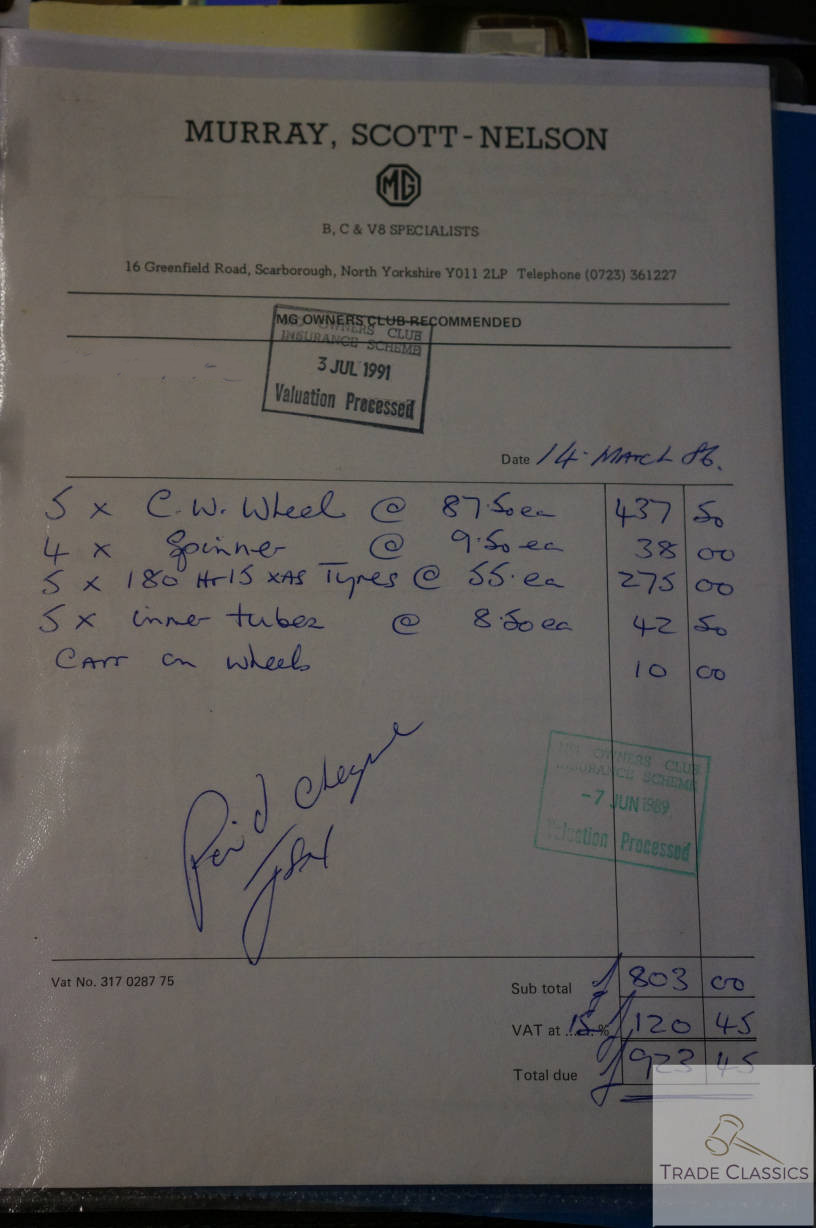 MURRAY, SCOTT-NELSON
MG
B, C & V8 SPECIALISTS
16 Greenfield Road, Scarborough, North Yorkshire Y011 2LP Telephone (0723) 361227
MG OWNERS CLUB RECOMMENDED
OWNERS CLUB
INSURANCE SCHEME
3 JUL 1991
Valuation Processed
Date 14. March 86.
5 x C.W. Wheel @ 87.50 ea 437 50
4 x Spinner @ 9.50 ea 38 00
5 x 180 Hr15 XAS Tyres @ 55. ea 275 00
5 x inner tubes @ 8.50 ea 42 50
Carr on wheels 10 00
Paid Cheque
OWNERS CLUB
INSURANCE SCHEME
-7 JUN 1989
Valuation Processed
Vat No. 317 0287 75
Sub total £ 803 00
VAT at 15 % £ 120 45
Total due £ 923 45
TRADE CLASSICS